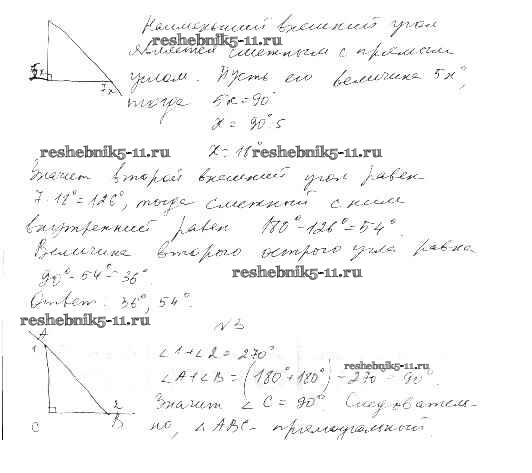 Наименьший внешний угол
reshebnik5-11.ru
является смежным с прямым
углом. Пусть его величина 5х°,
5х
7х
тогда 5х = 90°
х = 90° : 5
reshebnik5-11.ru х = 18° reshebnik5-11.ru
Значит второй внешний угол равен
7 · 18° = 126°, тогда смежный с ним
внутренний равен 180° - 126° = 54°.
Величина второго острого угла равна
90° - 54° = 36°. reshebnik5-11.ru
Ответ: 36°, 54°.
reshebnik5-11.ru
N3
A
1
∠1 + ∠2 = 270°
reshebnik5-11.ru
∠A + ∠B = (180° + 180°) - 270° = 90°.
Значит ∠C = 90°. Следователь-
2
C B
но, ∠ABC - прямоугольный.